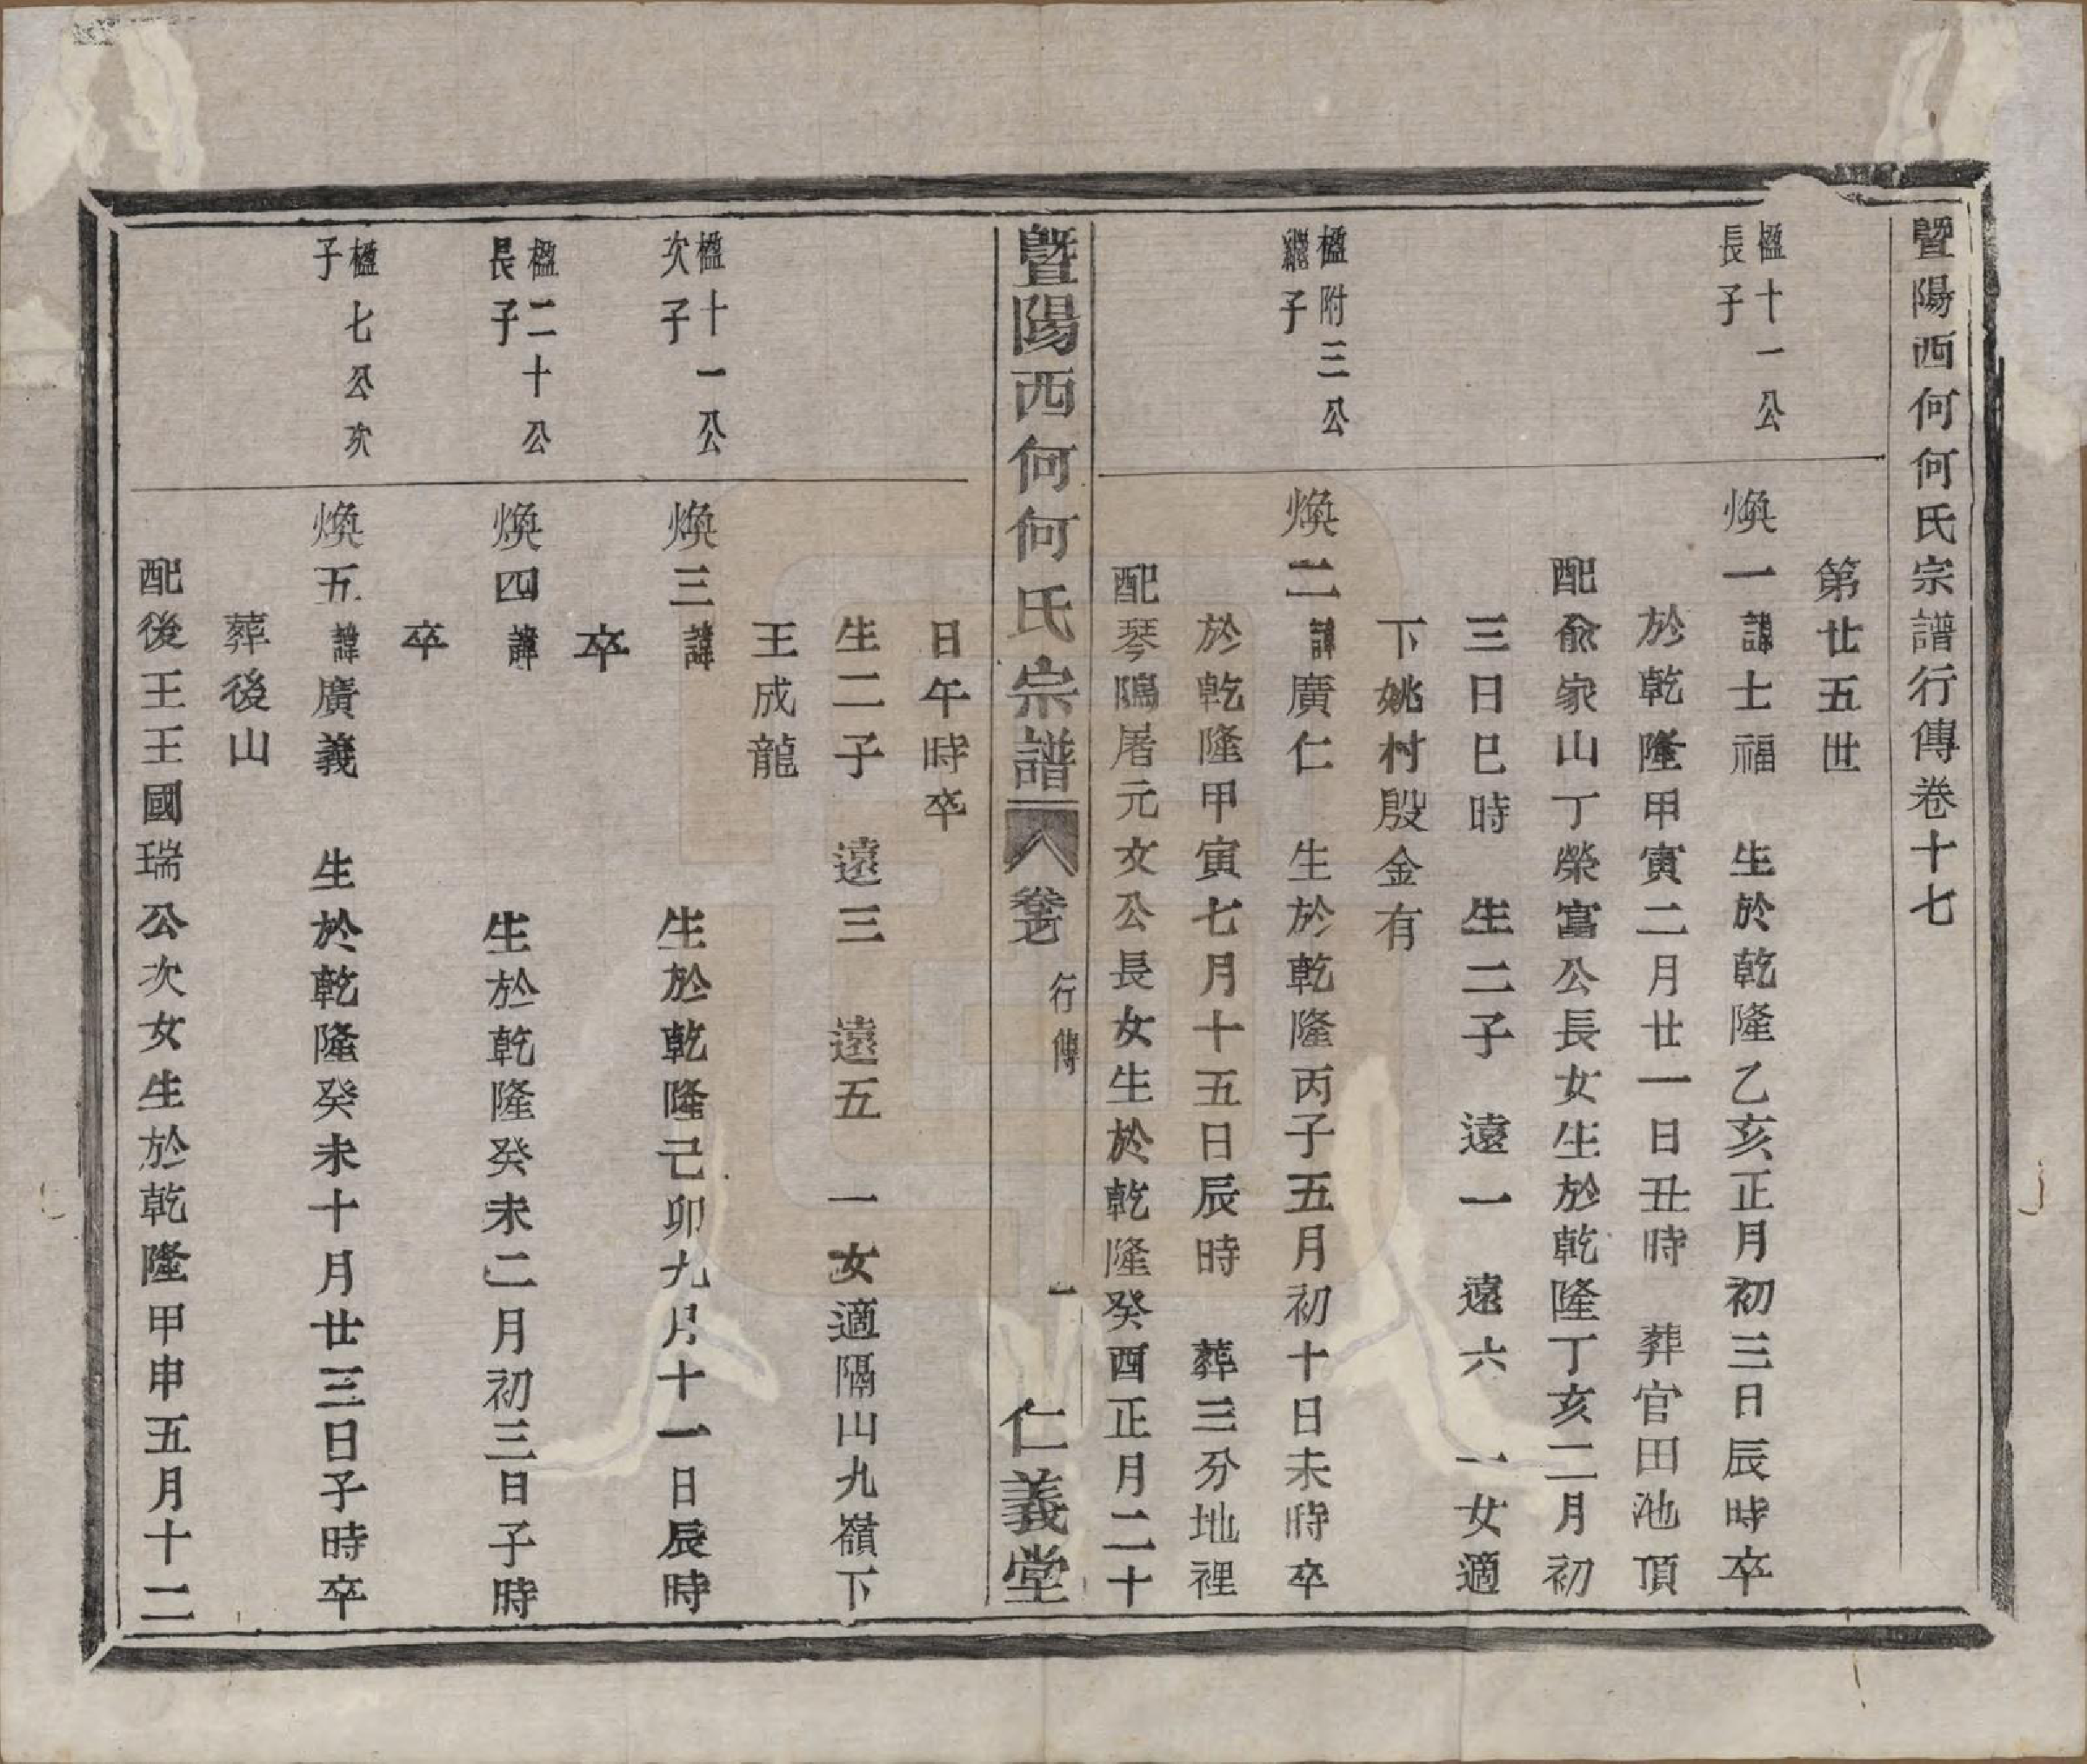 暨陽西何何氏宗譜行傳卷十七
第廿五世
楹十一公
長子
煥一諱士福　生於乾隆乙亥正月初三日辰時卒
於乾隆甲寅二月廿一日丑時　葬官田池頂
配兪家山丁榮富公長女生於乾隆丁亥二月初
三日巳時　生二子　遠一　遠六　一女適
下姚村殷金有
楹附三公
繼子
煥二諱廣仁　生於乾隆丙子五月初十日未時卒
於乾隆甲寅七月十五日辰時　葬三分地裡
配琴隖屠元文公長女生於乾隆癸酉正月二十
暨陽西何何氏宗譜　卷十七　行傳　一　仁義堂
日午時卒
生二子　遠三　遠五　一女適隔山九嶺下
王成龍
楹十一公
次子
煥三諱　生於乾隆己卯九月十一日辰時
卒
楹二十公
長子
煥四諱　生於乾隆癸未二月初三日子時
卒
楹七公次
子
煥五諱廣義　生於乾隆癸未十月廿三日子時卒
葬後山
配後王王國瑞公次女生於乾隆甲申五月十二